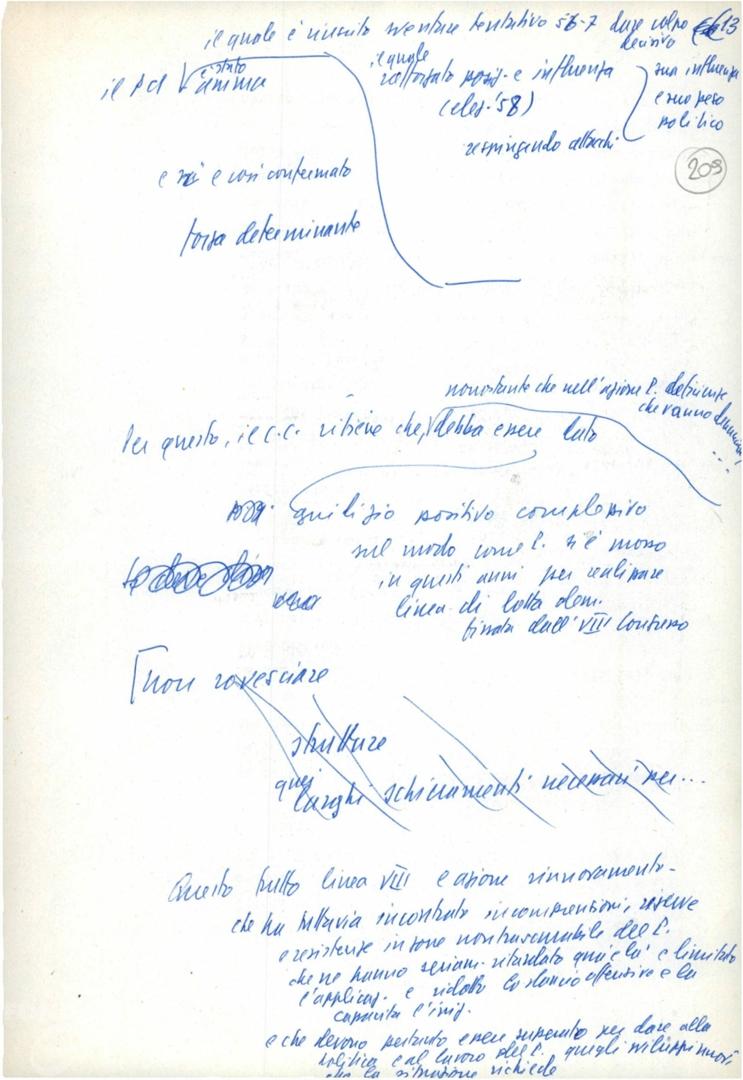 il quale è riuscito sventare tentativo 56-7 dare colpo
decisivo
13
il Pd è stato
anima
il quale
rafforzato posiz. e influenza
(elez. '58)
respingendo attacchi
sua influenza
e suo peso
politico
209
e si è così confermato
forza determinante
nonostante che nell'azione P. deficienze
che vanno
...
Per questo, il C.C. ritiene che, debba essere dato
giudizio positivo complessivo
sul modo come P. si è mosso
in questi anni per realizzare
linea di lotta dem.
fissata dall'VIII Congresso
non rovesciare
strutture
quei
larghi schieramenti necessari per...
Questo frutto linea VIII e azione rinnovamento
che ha tuttavia incontrato incomprensioni, riserve
e resistenze in zone non trascurabile del P.
che ne hanno seriam. ritardato qua e là e limitato
l'applicaz. e ridotto lo slancio offensivo e la
capacità d'iniz.
e che devono pertanto essere superato per dare alla
politica e al lavoro del P. quegli sviluppi nuovi
che la situazione richiede